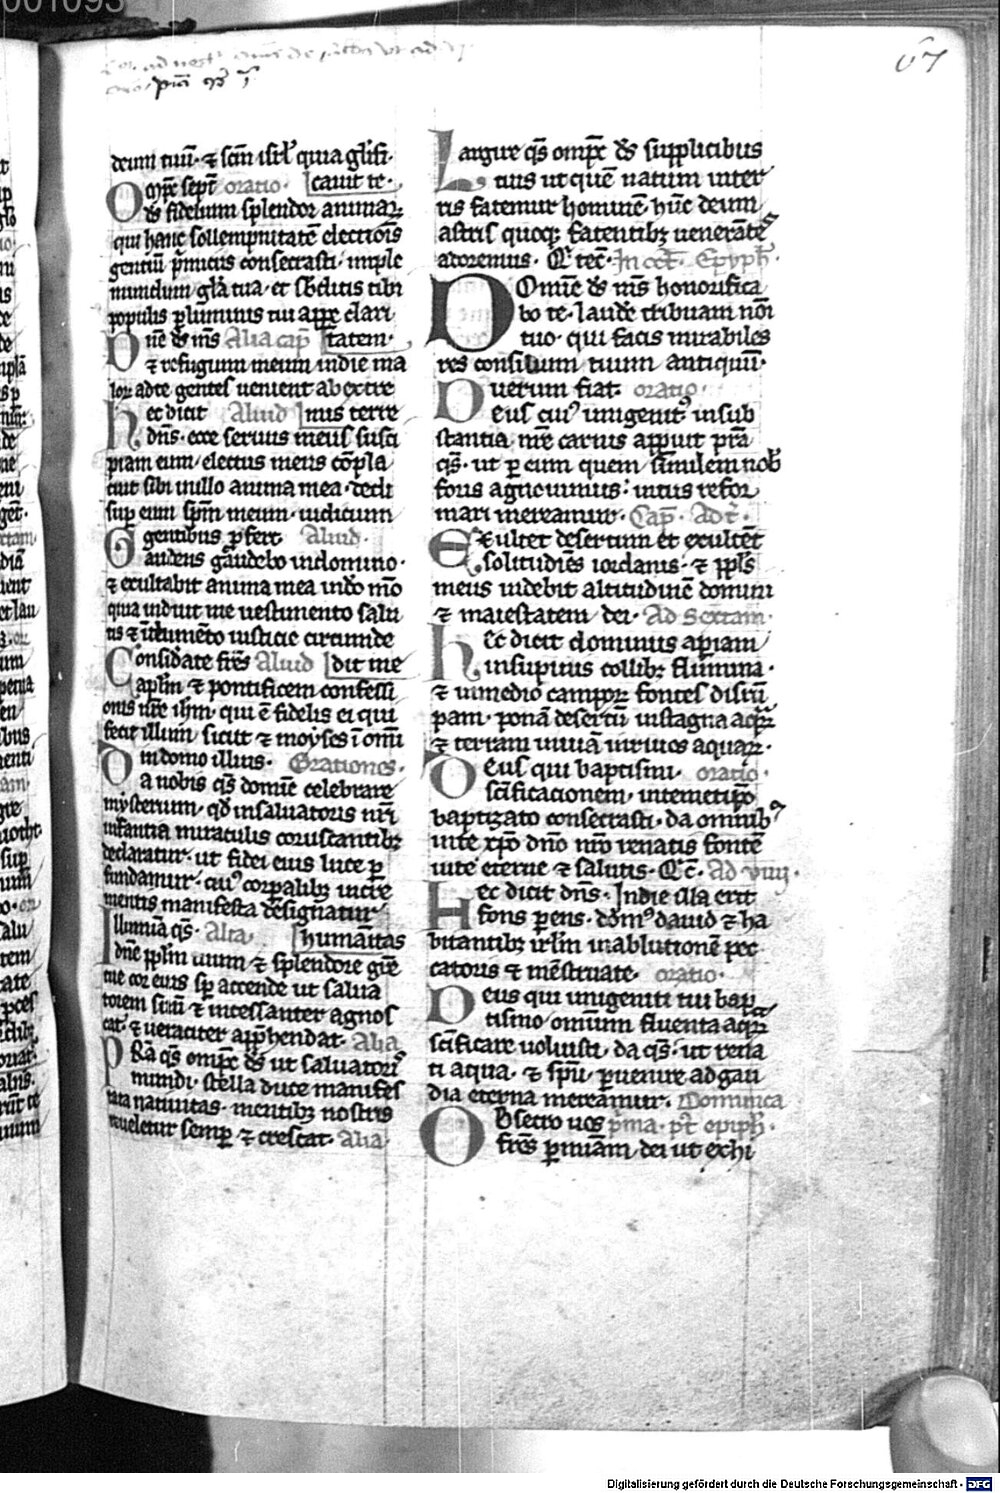 67
deum tuū · ⁊ scm̄ isrl̄ quia gl̄ifi·
Om̄pē sept̄ oratio · [cauit te ·
ds̄ fidelium splendor animaꝝ
qui hanc sollempnitatē electiōis
gentiū p̄miciis consecrasti · imple
mundum gl̄a tua · et sb̄ditis tibi
populis ꝑ luminis tui appē clari
Dn̄e ds̄ ms̄ Alia cap̄ [tatem ·
⁊ refugium meum in die ma
lor̄ ad te gentes venient ab extre
hec dicit Aliud [mis terre
dn̄s · ecce seruus meus susci
piam eum / electus meus cōpla
cuit sibi in illo anima mea · dedi
suꝑ eum spm̄ meum · iudicium
gentibus ꝓfert Aliud ·
Gaudens gaudebo in domino ·
⁊ exultabit anima mea in dō mō
quia induit me vestimento salu
tis ⁊ idumēto iusticie circumde
Considate frēs Aliud [dit me
aplm̄ ⁊ pontificem confessi
onis nr̄e ihm̄ · qui ē fidelis ei qui
fecit illum / sicut ⁊ moyses ī omī
in domo illius · Orationes ·
Da nobis qs̄ domīe celebrare
mysterium · qd̄ in saluatoris nr̄i
infantia miraculis coruscantibꝫ
declaratur · ut fidei eius luce ꝑ
fundamur · cuiꝰ corꝑalibꝫ incre
mentis manifesta dēsignatur
Illumīa qs̄ · Alia · [humāitas
dn̄e pplm̄ tuum ⁊ splendore grē
tue cor eius sꝑ accende ut salua
torem suū ⁊ incessanter agnos
cat · ⁊ veraciter appr̄hendat · Alia
Pr̄a qs̄ om̄pē ds̄ ut saluatoris
mundi · stella duce manifes
tata natiuitas · mentibꝫ nostris
reueletur semꝑ ⁊ crescat · Alia
Largire qs̄ om̄pē ds̄ supplicibus
tuis ut quē natum inter
ris fatemur hominē hūc deum
astris quoqꝫ fatentibꝫ venerātes
adoremus · Q tec̄ · In oct̄ · Epyph̄ ·
Domīe ds̄ ms̄ honorifica
bo te · laudē tribuam nōi
tuo · qui facis mirabiles
res consilium tuum antiquū ·
verum fiat · oratio ·
Deus cuiꝰ unigenitꝰ in sub
stantia nr̄e carnis appuit pr̄a
qs̄ · ut ꝑ eum quem similem nob̄
foris agnouimus · intus refor
mari mereamur · Cap̄ · Ad t̄ ·
Exultet desertum et exultēt
solitudīes iordanis · ⁊ ppls̄
meus videbit altitudinē domini
⁊ maiestatem dei · Ad Sextam ·
hec dicit dominus aꝑiam
in supinis collibꝫ flumina ·
⁊ in medio campoꝝ fontes disrū
pam · ponā desertū in stagna aqꝝ
⁊ terram inuiā in riuos aquaꝝ ·
Deus qui baptismi · oratio ·
sc̄ificacionem · in temetip̄o
baptizato consecrasti · da omnibꝰ
in te xp̄o dn̄o nr̄o renatis fontē
vite eterne ⁊ salutis · Qc̄ · Ad viiii ·
Hec dicit dn̄s · In die illa erit
fons patens · domꝰ dauid ⁊ ha
bitantibꝫ irlm̄ in ablutionē pec
catoris ⁊ mēstruate · oratio ·
Deus qui unigeniti tui bap
tismo / omnium fluenta aqꝝ
sc̄ificare voluisti · da qs̄ · ut rena
ti aqua · ⁊ spū · ꝑuenire ad gau
dia eterna mereamur · Dominica
Obsecro vos p̄ma · pt̄ epiph̄ ·
frēs ꝑ miāam / dei ut exhi
Digitalisierung gefördert durch die Deutsche Forschungsgemeinschaft - DFG